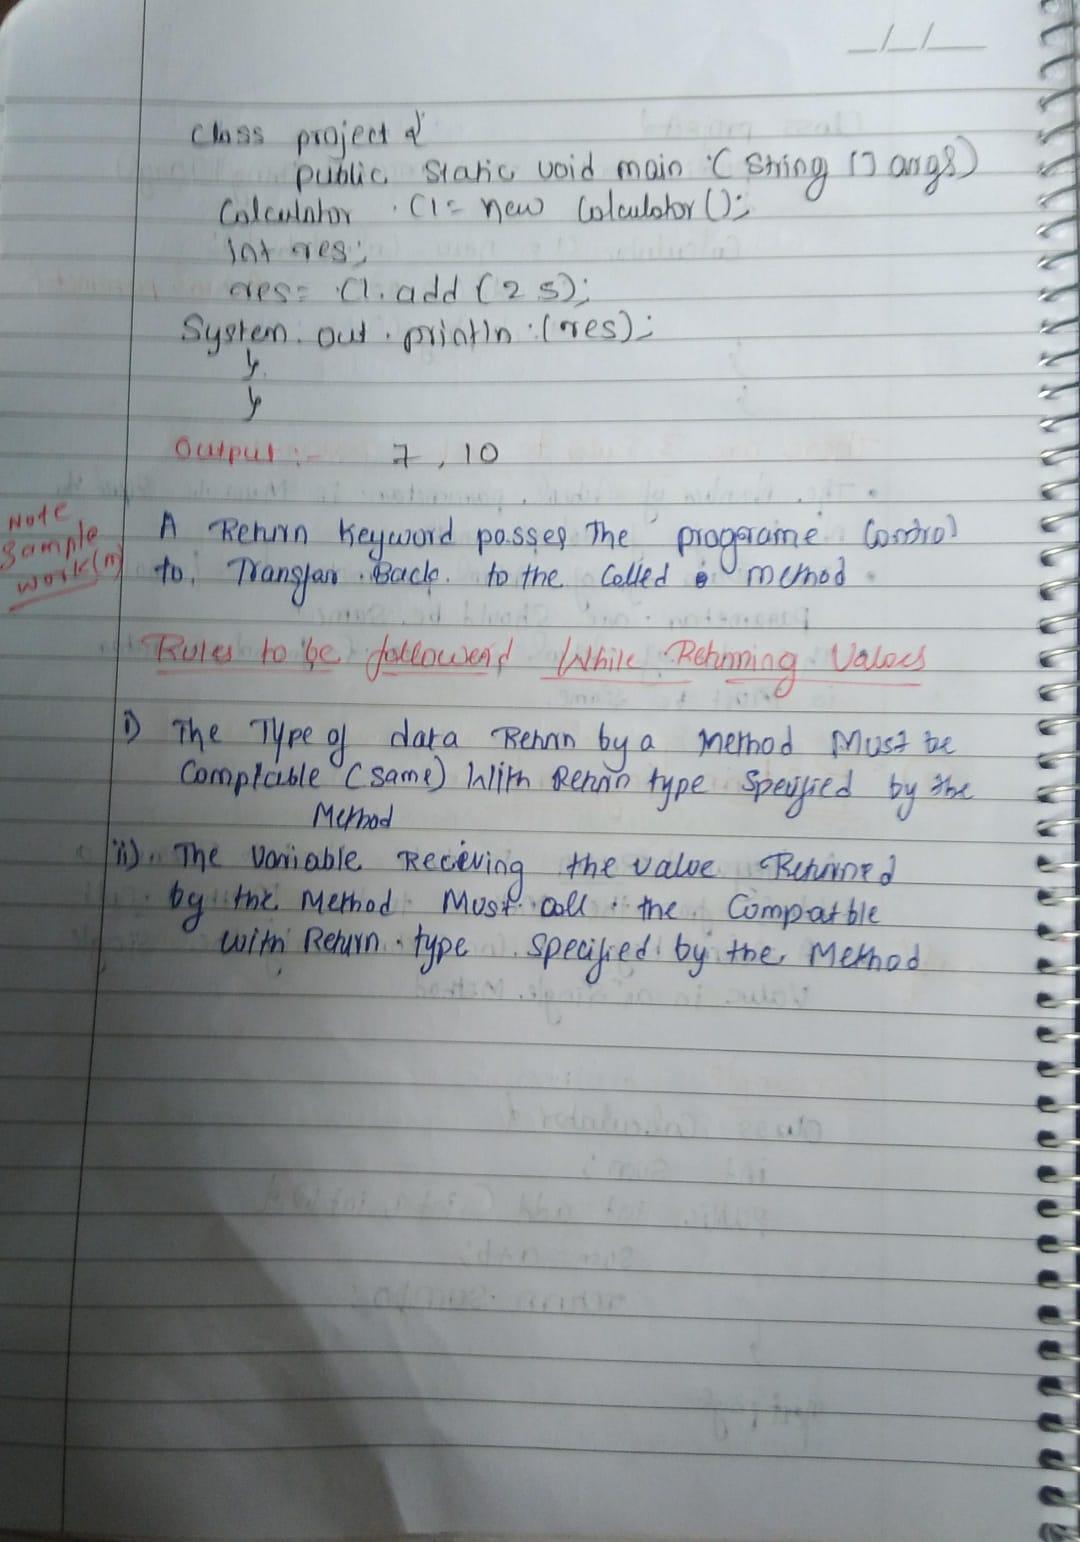 __/__/____
class project {
public static void main (String [] args)
Calculator C1 = new Calculator ();
int res;
res = C1. add (2 5);
System. out . println (res);
}
}
Output :- 7, 10
Note
Sample
work(n)
A Return Keyword passes The programe Control
to. Transfar Back. to the Called method
Rules to be followerd While Returning Values
i) The Type of data Return by a method Must be
Comptable (same) With Return type Specified by the
Method
ii) The variable Receving the value Returned
by the Method Must call the Compatble
with Return type Specified by the Method